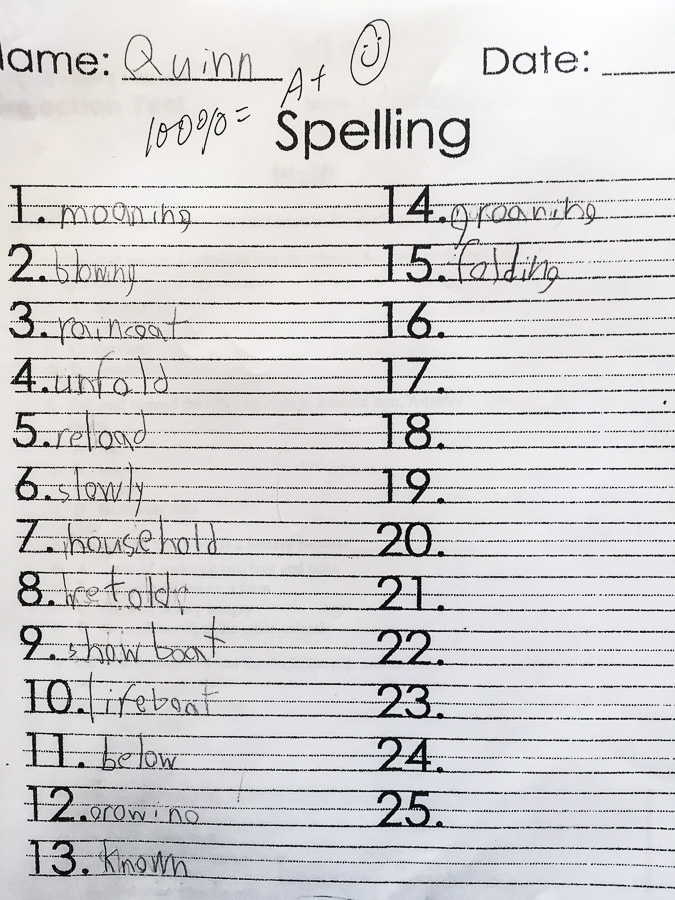 Name: Quinn
Date:
100% = A+
Spelling
1. moaning
2. blowing
3. raincoat
4. unfold
5. reload
6. slowly
7. household
8.
9. show boat
10. lifeboat
11. below
12. growing
13. known
14. groaning
15. folding
16.
17.
18.
19.
20.
21.
22.
23.
24.
25.